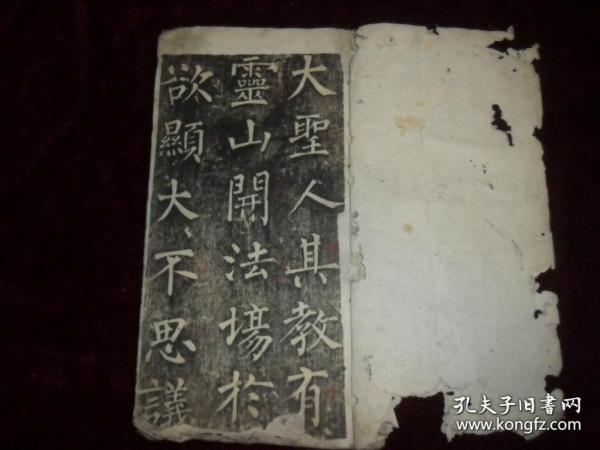 大聖人其教有
靈山開法場於
欲顯大不思議
孔夫子旧书网
www.kongfz.com